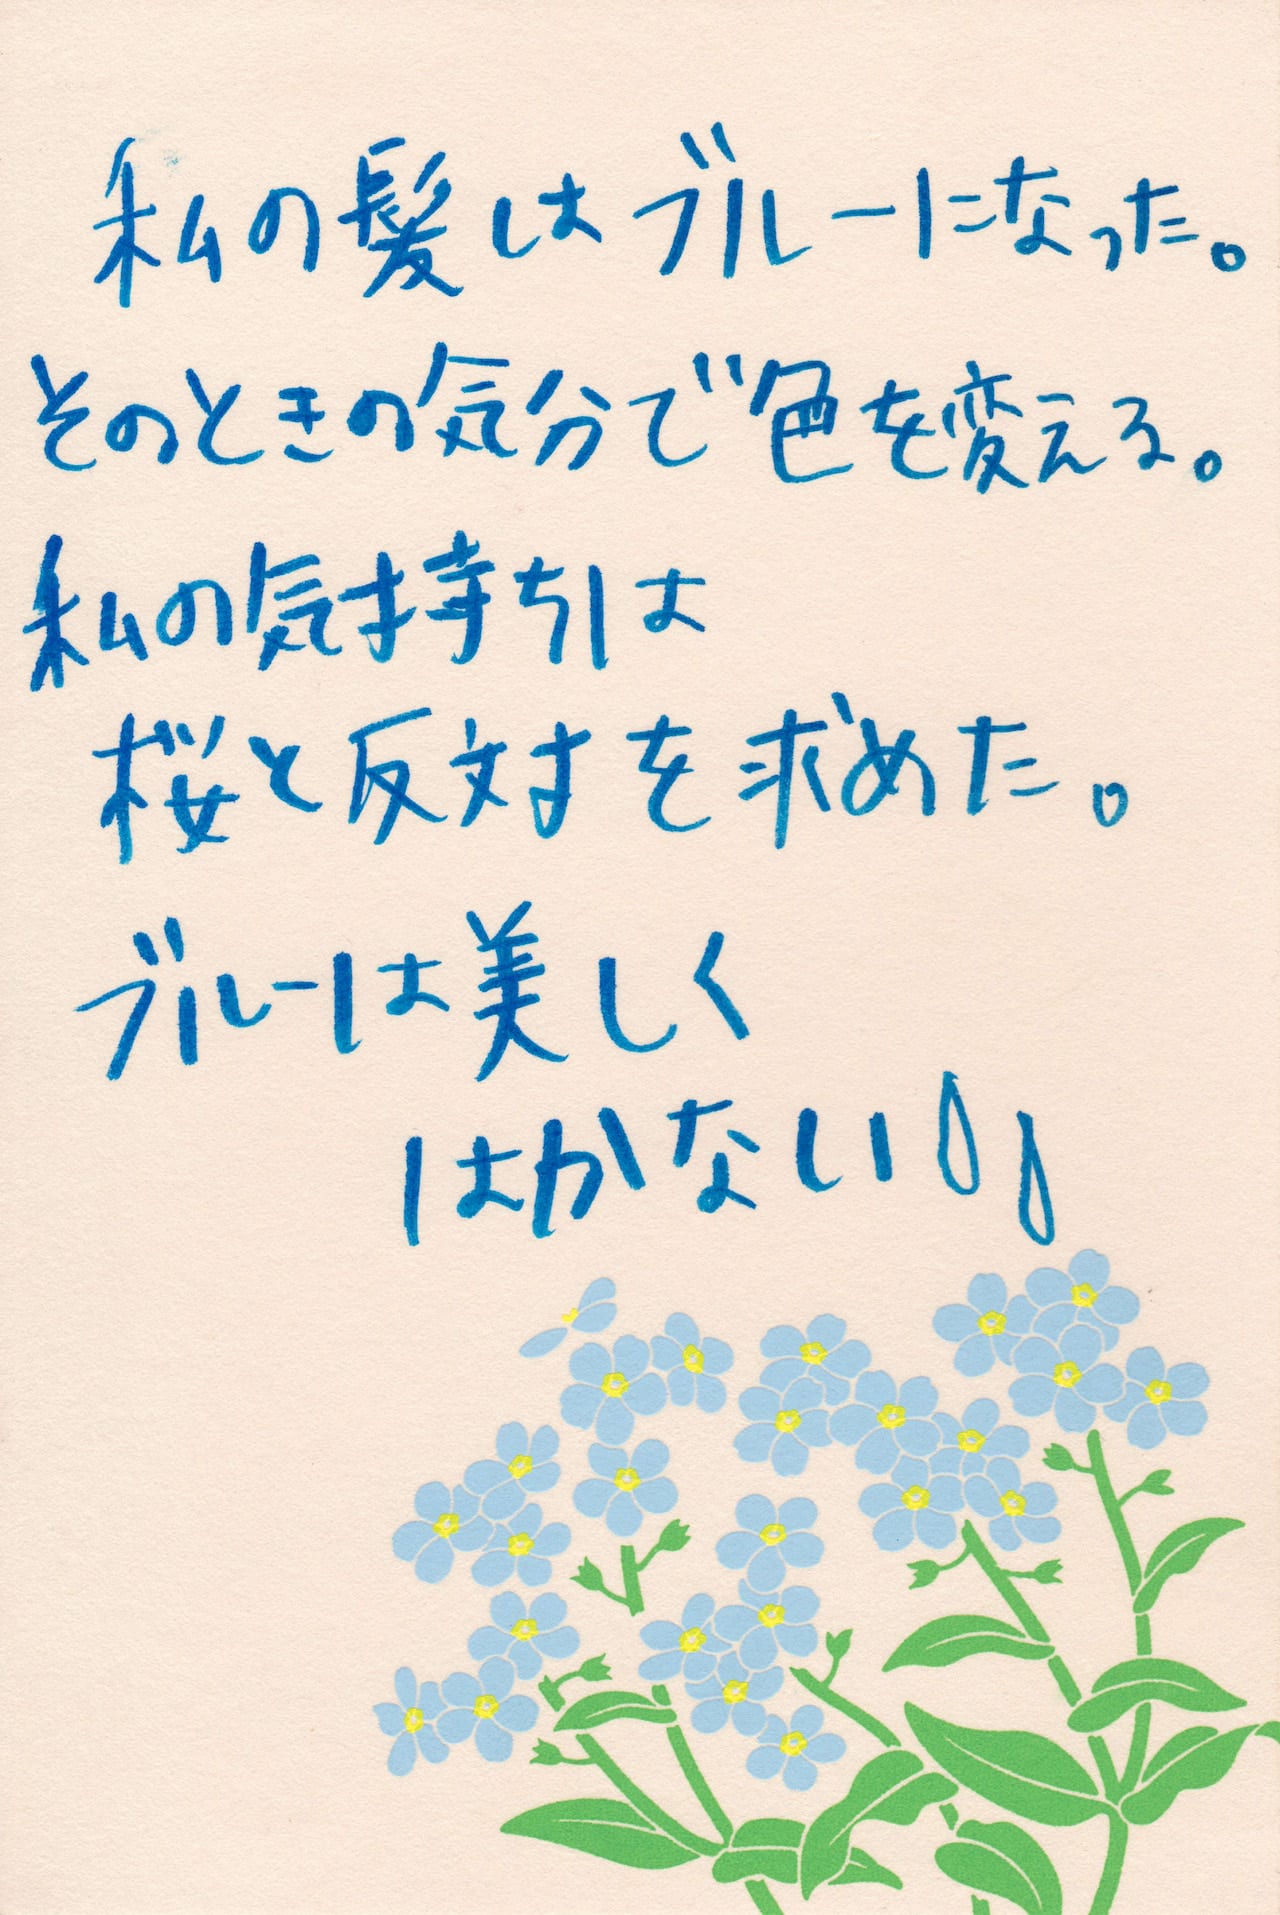 私の髪はブルーになった。
そのときの気分で色を変える。
私の気持ちは
桜と反対を求めた。
ブルーは美しく
はかない